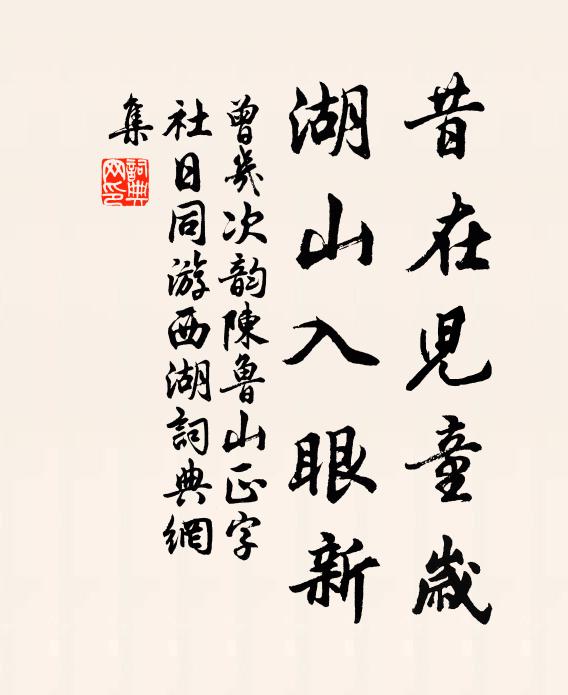 昔在兒童歲
湖山入眼新
曾幾次韵陳魯山正字
社日同游西湖詞典網
集
詞典網印